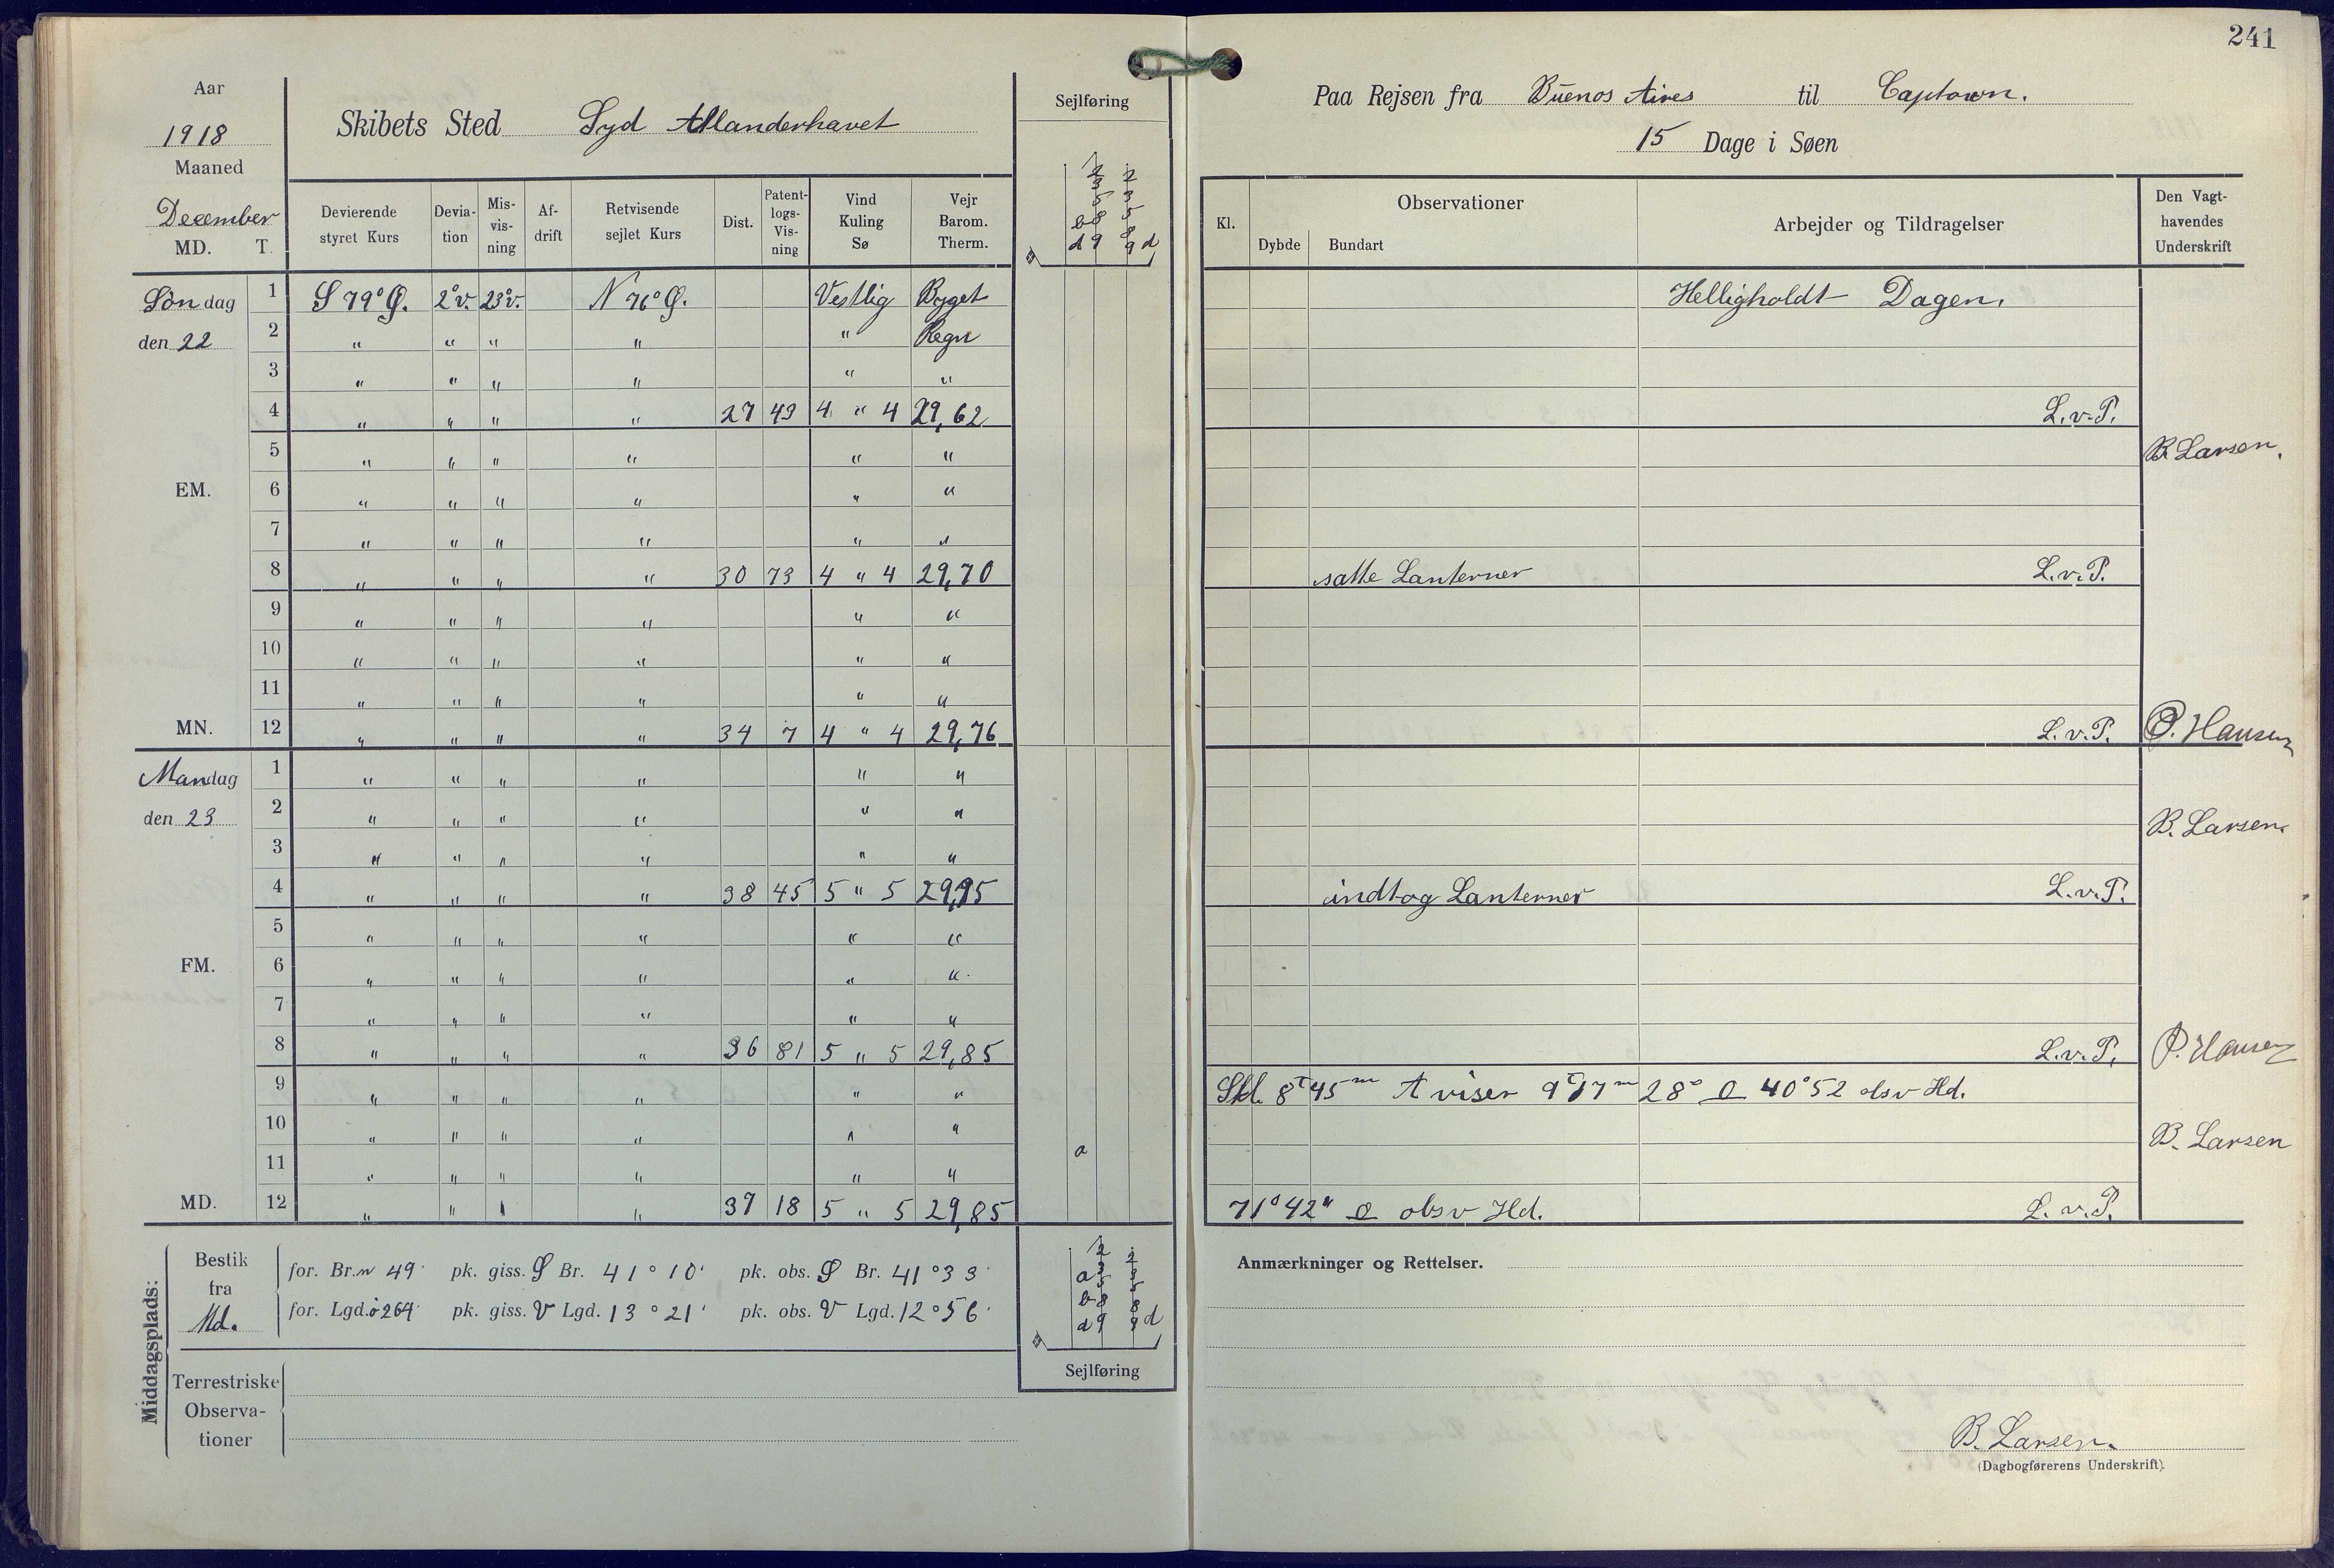 241
Aar
1918
Maaned
December
MD. T.
Skibets Sted Syd Atlanderhavet
Sejlføring
Paa Rejsen fra Buenos Aires til Captown.
15 Dage i Søen
Devierende styret Kurs
Devia-tion
Mis-vis-ning
Af-drift
Retvisende sejlet Kurs
Dist.
Patent-logs-Vis-ning
Vind Kuling Sø
Vejr Barom. Therm.
Kl.
Observationer
Dybde Bundart
Arbejder og Tildragelser
Den Vagt-havendes Underskrift
Søn dag 1 S 79° Ø. 2°v. 23°v. N 76° Ø. Vestlig Byget Helligholdt Dagen.
den 22 2 " " " " " Regn
3 " " " " " "
4 " " " " 27 43 4 " 4 29,62 L.v.P.
5 " " " " " " B. Larsen.
EM. 6 " " " " " "
7 " " " " " "
8 " " " " 30 73 4 " 4 29,70 satte Lanterner L.v.P.
9 " " " " " "
10 " " " " " "
11 " " " " " "
MN. 12 " " " " 34 7 4 " 4 29,76 L.v.P. P. Hansen
Mandag 1 " " " " " "
den 23 2 " " " " " " B. Larsen.
3 " " " " " "
4 " " " " 38 45 5 " 5 29, 5 indtog Lanterner L.v.P.
5 " " " " " "
FM. 6 " " " " " "
7 " " " " " "
8 " " " " 36 81 5 " 5 29,85 L.v.P. P. Hansen
9 " " " " " " Skl. 8 45m A viser 9 17m 28s O 40°52 obsv Hd.
10 " " " " " " B. Larsen
11 " " " " " " a
MD. 12 " " " " 37 18 5 " 5 29,85 71°42" O obsv Hd. L.v.P.
Middagsplads:
Bestik fra Md.
for. Br. n 49' pk. giss. S Br. 41° 10' pk. obs. S Br. 41° 33'
for. Lgd. ö 264' pk. giss. V Lgd. 13° 21' pk. obs. V Lgd. 12° 56'
Terrestriske Observa-tioner
Sejlføring
Anmærkninger og Rettelser.
B. Larsen.
(Dagbogførerens Underskrift).